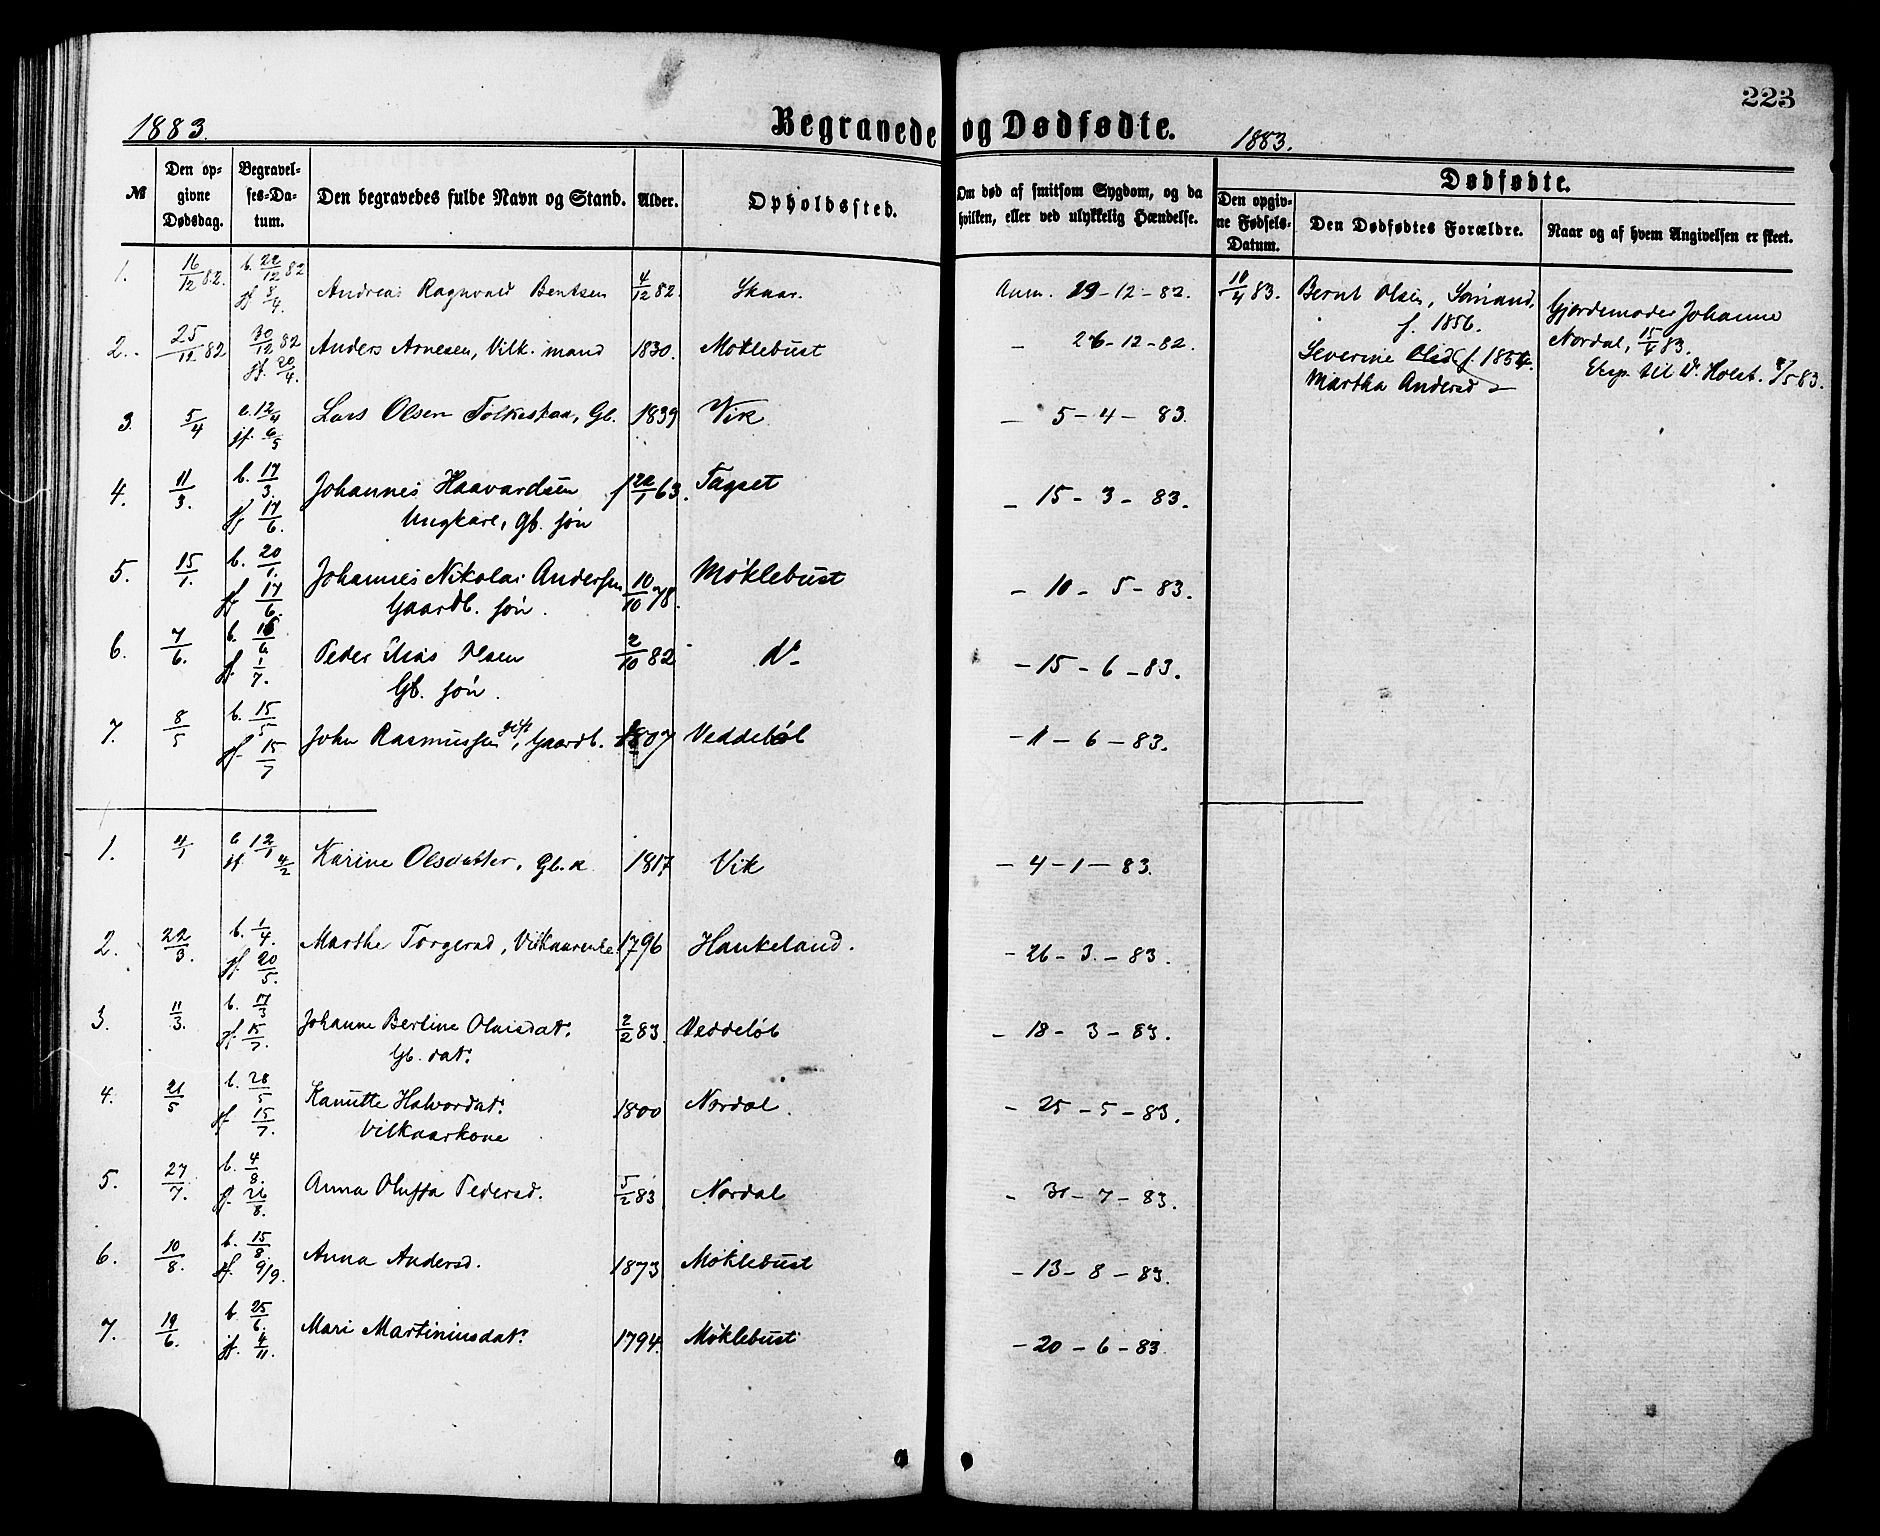 223
1883.
Begravede og Dødfødte.
1883.
№
Den opgivne Dødsdag.
Begravelses-Datum.
Den begravedes fulde Navn og Stand.
Alder.
Opholdssted.
Om død af smitsom Sygdom, og da hvilken, eller ved ulykkelig Hændelse.
Dødfødte.
Den opgivne Fødsels-Datum.
Den Dødfødtes Forældre.
Naar og af hvem Angivelsen er skeet.
1. 16/12 82. b. 22/12 82 jf 8/4. Andreas Ragnvald Bentsen 4/12 82. Skaar. Anm. 29-12-82.
10/4 83. Bernt Olsen, Sømand, f. 1856.
Severine Olsd. f. 1854.
Martha Andersd
Gjordemoder Johanne
Nordal, 15/4 83.
Exp. til D. Holst. 8/5 83.
2. 25/12 82 30/12 82 jf. 20/4. Anders Arnesen, Vilk. mand 1830. Møklebust – 26-12-82.
3. 5/4 b. 12/4 jf. 6/5 Lars Olsen Folkestaa, Gb. 1839 Vik – 5-4-83.
4. 11/3. b. 17/3. jf 17/6. Johannes Haavardsen
Ungkarl, Gb. søn f 63. Tagset – 15-3-83.
5. 15/1. b. 20/1. jf 17/6. Johannes Nikolai Anderssen
Gaardb. søn. 10/10 78. Møklebust – 10-5-83.
6. 7/6. b. 16/6 jf. 1/7. Peder Elias Olsen
Gb. søn. 2/10 82 do – 15-6-83.
7. 8/5 b. 15/5 jf 15/7 John Rasmussen gift, Gaardb. 1807 Veddeløb – 1-6-83.
1. 4/1 b 12/1 jf 4/2 Karine Olsdatter, Gb. k 1817 Vik – 4-1-83.
2. 22/3. b. 1/4. jf. 20/5. Marthe Torgersd, Vilkaarenke 1796 Haukeland. – 26-3-83.
3. 11/3. b. 17/3 jf 15/7. Johanne Berline Olaisdatr.
Gb. datr. 2/2 83. Veddeløb – 18-3-83.
4. 21/5 b. 28/5 jf 15/7. Kanutte Halvordatr.
Vilkaarkone 1800 Nordal. – 25-5-83.
5. 27/7. b. 4/8. jf. 26/8. Anna Oluffa Pedersd. 5/2 83 Nordal – 30-7-83.
6. 10/8. b. 15/8. jf. 9/9. Anna Andersd. 1873 Møklebust – 13-8-83.
7. 19/6. b. 25/6. jf. 4/11. Mari Martiniusdatr. 1794. Møklebust – 20-6-83.